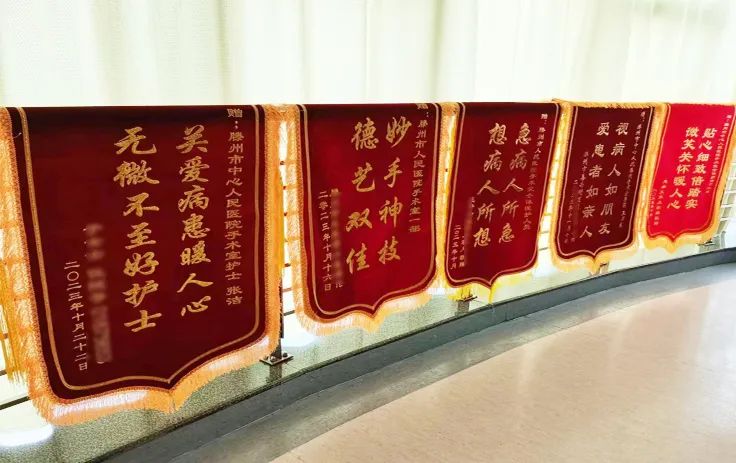 赠：滕州市中心人民医院手术室护士 张洁
关爱病患暖人心
无微不至好护士
二〇二三年十月二十二日
赠：滕州市人民医院手术室一部
妙手神技
德艺双佳
二零二三年十月十六日
急病人所急
想病人所想
二〇二三年十月
视病人如朋友
爱患者如亲人
贴心细致倍踏实
微笑关怀暖人心